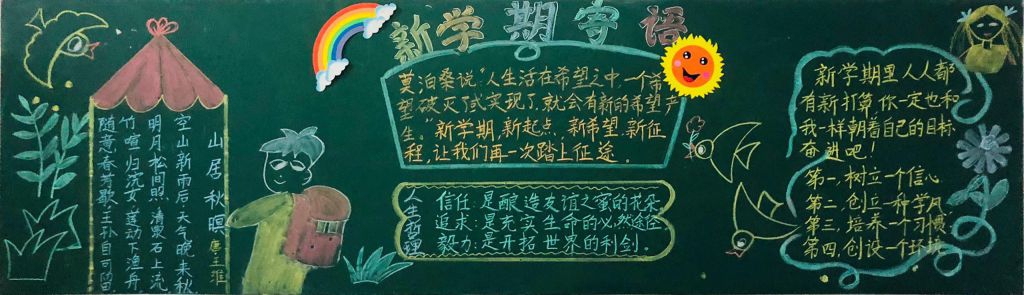 新学期寄语
山居秋暝 唐 王维
空山新雨后,天气晚来秋。
明月松间照,清泉石上流。
竹喧归浣女,莲动下渔舟。
随意春芳歇,王孙自可留。
莫泊桑说:“人生活在希望之中,一个希
望破灭了或实现了,就会有新的希望产
生。”新学期,新起点,新希望,新征
程,让我们再一次踏上征途。
人生哲理
信任:是酿造友谊之蜜的花朵,
追求:是充实生命的必然途径
毅力:是开拓世界的利剑。
新学期里人人都
有新打算,你一定也和
我一样朝着自己的目标
奋进吧!
第一,树立一个信心
第二,创立一种学风
第三,培养一个习惯
第四,创设一个环境